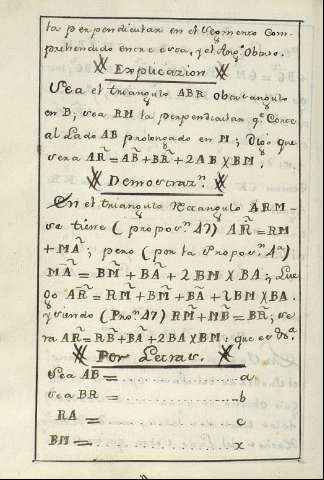 la perpendicular en el segmento com-
prehendido entre esta, y el Angº Obtuso.
Explicazion
Sea el triangulo ABR Obtusangulo
en B; sea RM la perpendicular qe corte
al Lado AB prolongado en M; Digo que
sera AR̃ = AB̃ + BR̃ + 2AB X BM.
Demostrazn.
En el triangulo Rectangulo ARM-
se tiene (proposn 47) AR̃ = RM
+ MÃ; pero (por la Proposn 4a)
MÃ = BM̃ + BÃ + 2BM X BA; Lue
go AR̃ = RM̃ + BM̃ + BÃ + 2BM X BA.
y siendo (Pron 47) RM̃ + MB̃ = BR̃; se
ra AR̃ = RB̃ + BÃ + 2BA X BM: que es
Por Letras.
Sea AB = a
sea BR = b
RA = c
BM = x